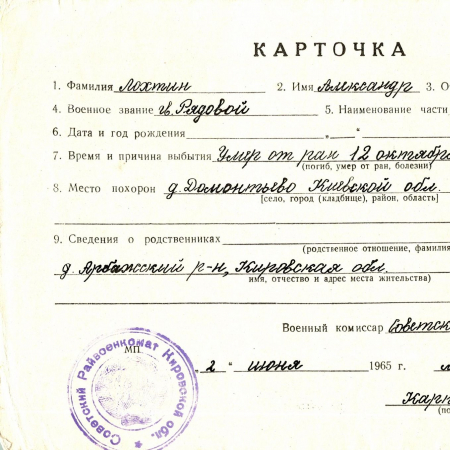 КАРТОЧКА
1. Фамилия Лохтин 2. Имя Александр 3. О
4. Военное звание гв. Рядовой 5. Наименование части
6. Дата и год рождения „ “
7. Время и причина выбытия Умер от ран 12 октября
(погиб, умер от ран, болезни)
8. Место похорон д. Домонтьево Киевской обл.
[село, город (кладбище), район, область]
9. Сведения о родственниках
(родственное отношение, фамилия
д. Арбажский р-н, Кировская обл.
имя, отчество и адрес места жительства)
Военный комиссар Советск
МП
„2“ июня 1965 г.
Карп
(по
Советский Райвоенкомат Кировской обл.